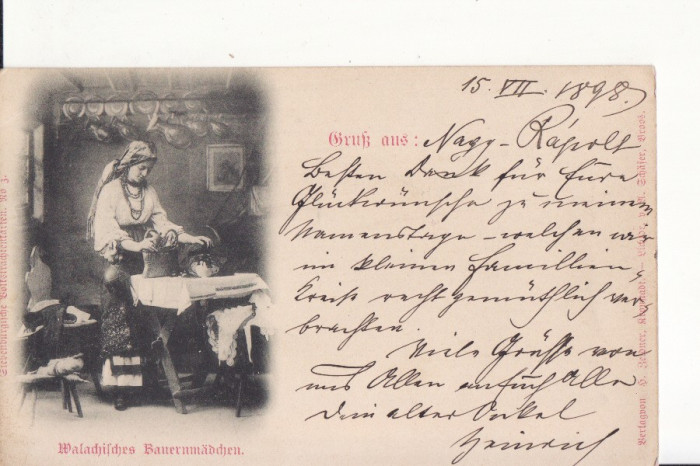 15. VII. 1898.
Gruß aus: Nagy-Rápolt
Besten Dank für Eure
Glückwünsche zu meinem
Namenstage – welchen wir
im kleinen Familien-
Kreise recht gemüthlich ver-
brachten.
Viele Grüsse von
uns Allen an Euch Alle
Dein alter Onkel
Heinrich
Walachisches Bauernmädchen.
Siebenbürgische Volkstrachtenkarten. No 3.
Verlag von
Schäfer, Broos.